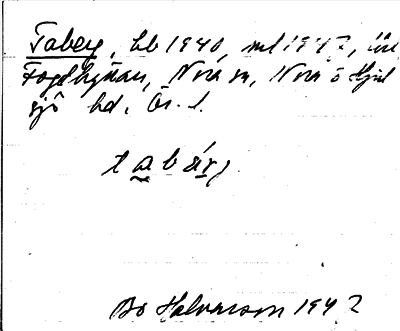 Taberg, hb 1940, ml 1947, i
Fogdhyttan, Nora sn, Nora o Hjul
sjö hd, Ör. l.
tabärj
Bo Halvarson 1947